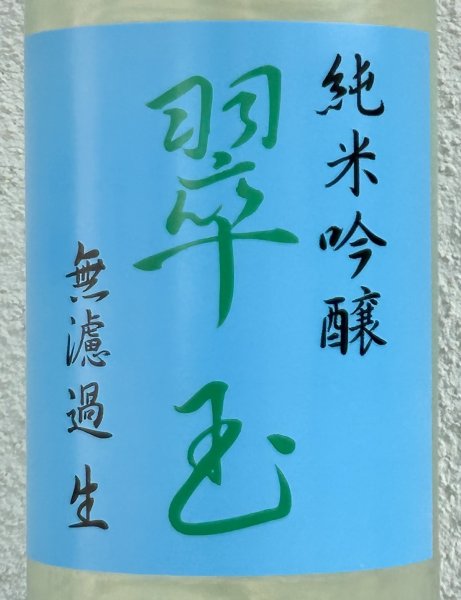 純米吟醸
翠玉
無濾過 生